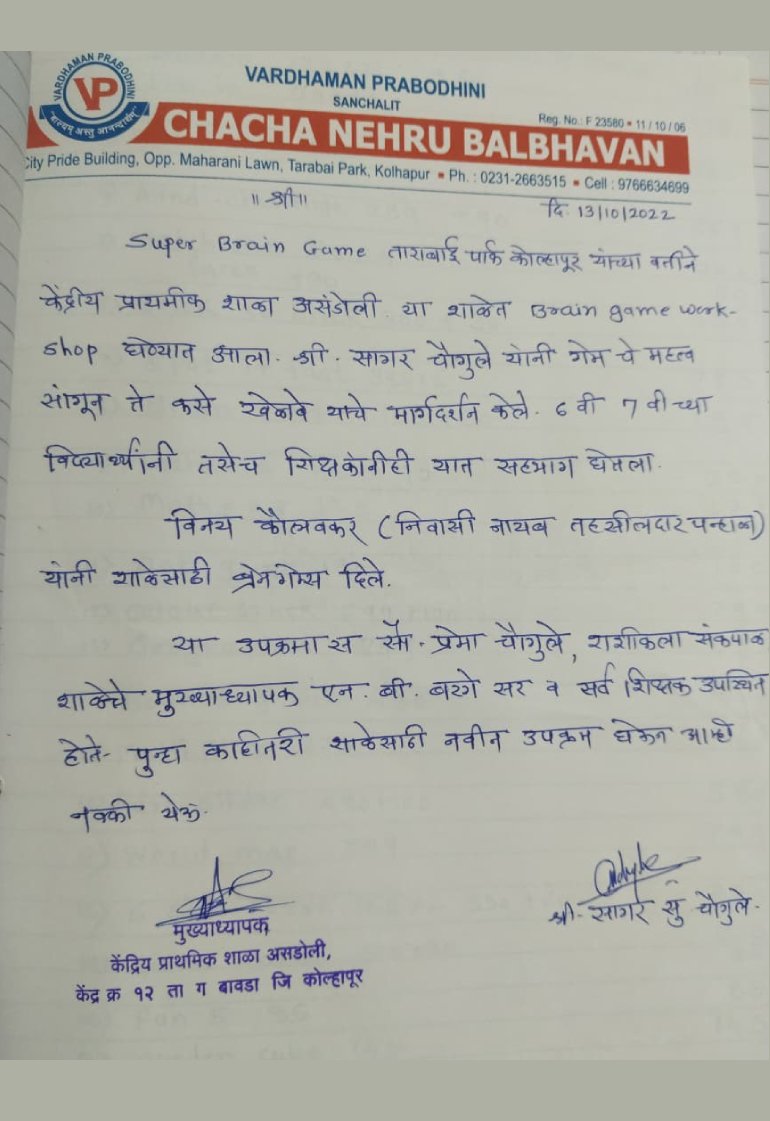 VARDHAMAN PRABODHINI
VP
"बाल्यम् अस्तु आनन्दार्थम्"
VARDHAMAN PRABODHINI
SANCHALIT
Reg. No.: F 23580 • 11 / 10 / 06
CHACHA NEHRU BALBHAVAN
City Pride Building, Opp. Maharani Lawn, Tarabai Park, Kolhapur • Ph. : 0231-2663515 • Cell : 9766634699
॥ श्री ॥
दि. 13/10/2022
Super Brain Game ताराबाई पार्क कोल्हापूर यांच्या वतीने
केंद्रीय प्राथमीक शाळा असंडोली या शाळेत Brain game work-
shop घेण्यात आला. श्री. सागर चौगुले यांनी गेम चे महत्व
सांगून ते कसे खेळावे याचे मार्गदर्शन केले. 6 वी 7 वी च्या
विद्यार्थ्यांनी तसेच शिक्षकांनीही यात सहभाग घेतला.
विनय कौलवकर (निवासी नायब तहसीलदार पन्हाळा)
यांनी शाळेसाठी ब्रेनगेम्स दिले.
या उपक्रमास सौ. प्रेमा चौगुले, शशीकला संकपाळ
शाळेचे मुख्याध्यापक एन. बी. बरगे सर व सर्व शिक्षक उपस्थित
होते. पुन्हा काहीतरी शाळेसाठी नवीन उपक्रम घेऊन आम्ही
नक्की येऊ.
मुख्याध्यापक
केंद्रिय प्राथमिक शाळा असडोली,
केंद्र क्र १२ ता ग बावडा जि कोल्हापूर
श्री. सागर सु. चौगुले.